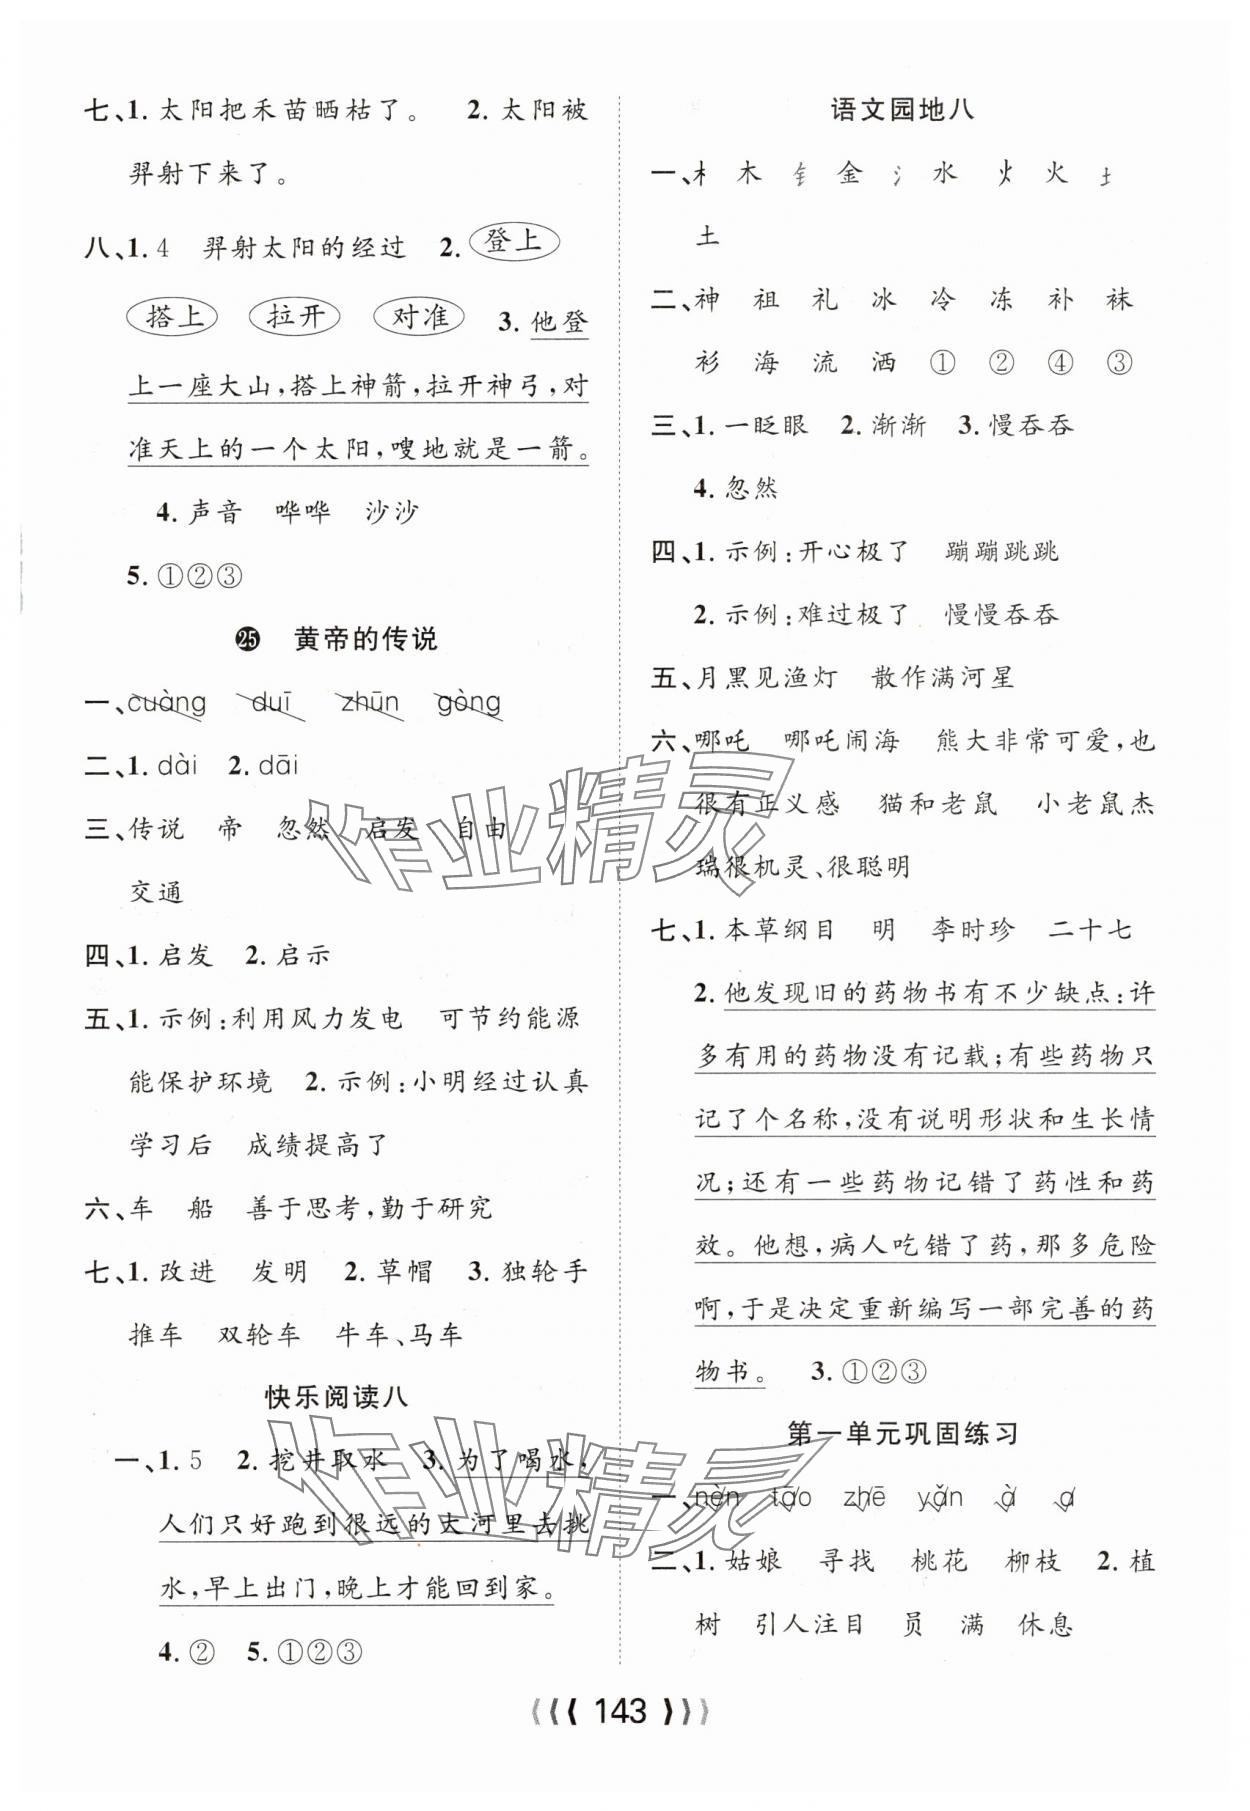 七、1. 太阳把禾苗晒枯了。 2. 太阳被
羿射下来了。
八、1. 4 羿射太阳的经过 2. 登上
搭上 拉开 对准 3. 他登
上一座大山,搭上神箭,拉开神弓,对
准天上的一个太阳,嗖地就是一箭。
4. 声音 哗哗 沙沙
5. ①②③
25 黄帝的传说
一、cuàng duī zhūn gòng
二、1. dài 2. dāi
三、传说 帝 忽然 启发 自由
交通
四、1. 启发 2. 启示
五、1. 示例:利用风力发电 可节约能源
能保护环境 2. 示例:小明经过认真
学习后 成绩提高了
六、车 船 善于思考,勤于研究
七、1. 改进 发明 2. 草帽 3. 独轮手
推车 双轮车 牛车、马车
快乐阅读八
一、1. 5 2. 挖井取水 3. 为了喝水,
人们只好跑到很远的大河里去挑
水,早上出门,晚上才能回到家。
4. ② 5. ①②③
语文园地八
一、木 木 钅 金 氵 水 火 火 土
土
二、神 祖 礼 冰 冷 冻 补 袜
衫 海 流 洒 ① ② ④ ③
三、1. 一眨眼 2. 渐渐 3. 慢吞吞
4. 忽然
四、1. 示例:开心极了 蹦蹦跳跳
2. 示例:难过极了 慢慢吞吞
五、月黑见渔灯 散作满河星
六、哪吒 哪吒闹海 熊大非常可爱,也
很有正义感 猫和老鼠 小老鼠杰
瑞很机灵、很聪明
七、1. 本草纲目 明 李时珍 二十七
2. 他发现旧的药物书有不少缺点:许
多有用的药物没有记载;有些药物只
记了个名称,没有说明形状和生长情
况;还有一些药物记错了药性和药
效。他想,病人吃错了药,那多危险
啊,于是决定重新编写一部完善的药
物书。 3. ①②③
第一单元巩固练习
一、nèn tāo zhē yǎn à a
二、1. 姑娘 寻找 桃花 柳枝 2. 植
树 引人注目 员 满 休息
143
作业精灵
作业精灵